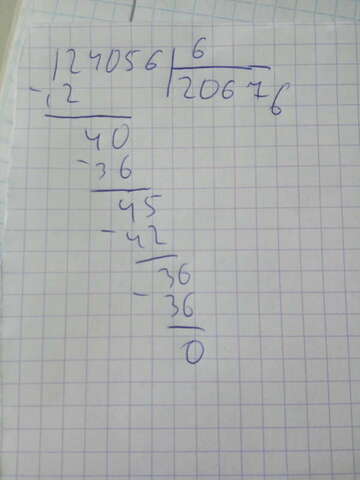 124056 6
-12 20676
40
-36
45
-42
36
-36
0